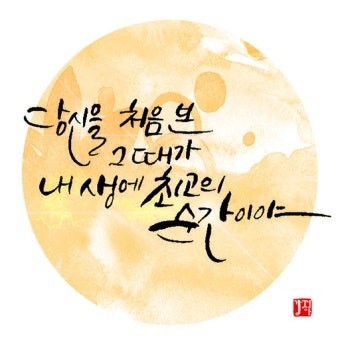 당신을 처음 본
그때가
내 생에 최고의
순간이야